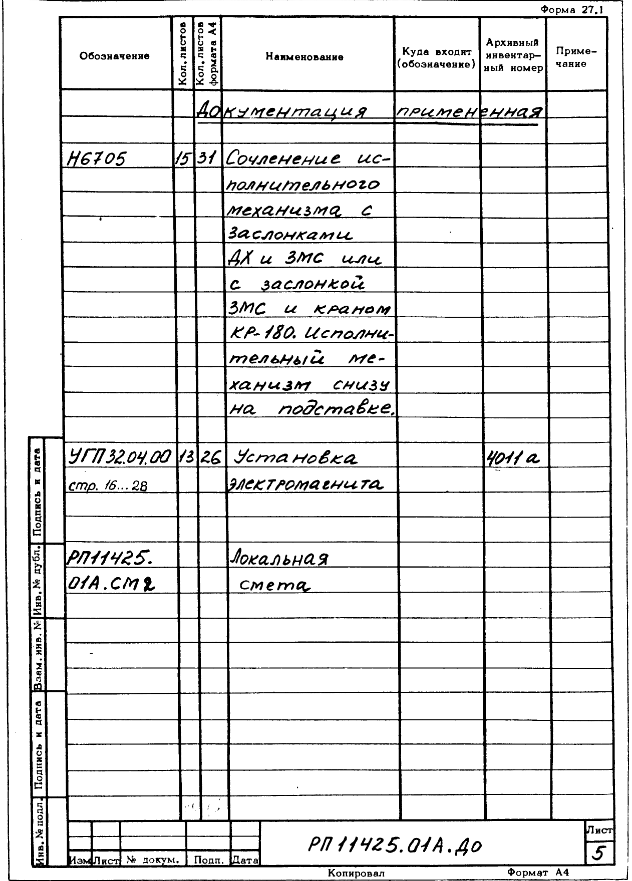 Форма 27.1
Обозначение Кол. листов Кол. листов формата А4 Наименование Куда входит (обозначение) Архивный инвентарный номер Примечание
Документация примененная
Н6705 15 31 Сочленение ис-
полнительного
механизма с
заслонками
ДХ и ЗМС или
с заслонкой
ЗМС и краном
КР-180. Исполни-
тельный ме-
ханизм снизу
на подставке.
УГП32.04.00 13 26 Установка 4011а
стр. 16...28 электромагнита
РП11425. Локальная
01А.СМ2 смета
Подпись и дата
Инв. № дубл.
Взам. инв. №
Подпись и дата
Инв. № подл.
РП11425.01А.ДО
Лист
5
Изм Лист № докум. Подп. Дата
Копировал Формат А4